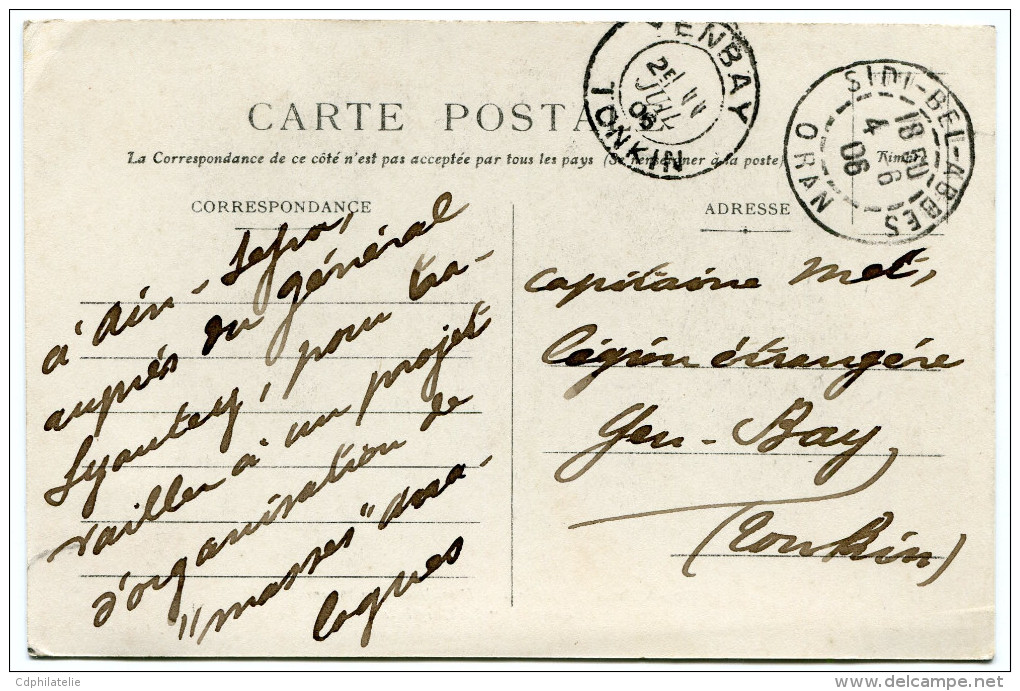 CARTE POSTA
La Correspondance de ce côté n'est pas acceptée par tous les pays (Se renseigner à la poste)
CORRESPONDANCE
à Ain-Sefra,
auprès du général
Lyautey, pour tra-
vailler à un projet
d'organisation de
"masses" ana-
logues
YENBAY
25 JUIL 06
TONKIN
SIDI-BEL-ABBES
18 50
4 6
06
ORAN
ADRESSE
Capitaine Met,
légion étrangère
Yen-Bay
(Tonkin)
Cdphilatelie
delcampe.net